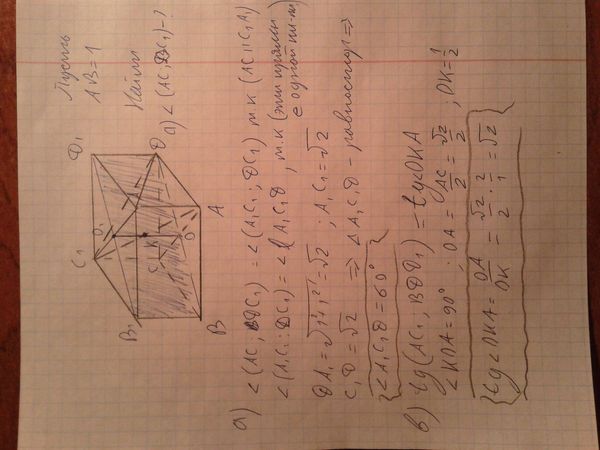 Пусть
AB = 1
Найти
а) < (AC, DC1) - ?
C1
D1
O1
B1
A1
D
C
K
O
B
A
а) < (AC, DC1) = < (A1C1; DC1) т.к (AC || C1A1)
< (A1C1; DC1) = < A1C1D, т.к (эти прямые
в одной пл-ти)
DA1 = √1²+1² = √2 ; A1C1 = √2
C1D = √2 => ΔA1C1D - равносторон =>
{ < A1C1D = 60°
в) tg (AC1; BDD1) = tg<OKA
< KOA = 90° ; OA = AC/2 = √2/2 ; OK = 1/2
{ tg < OKA = OA/OK = √2/2 · 2/1 = √2 }